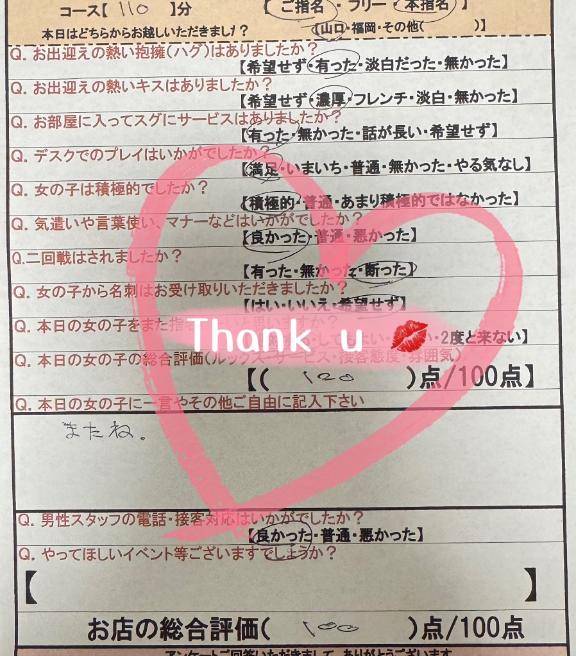 コース【 110 】分 【 ご指名・フリー・本指名 】
本日はどちらからお越しいただきました? 【山口・福岡・その他( )】
Q. お出迎えの熱い抱擁(ハグ)はありましたか?
【希望せず・有った・淡白だった・無かった】
Q. お出迎えの熱いキスはありましたか?
【希望せず・濃厚・フレンチ・淡白・無かった】
Q. お部屋に入ってスグにサービスはありましたか?
【有った・無かった・話が長い・希望せず】
Q. デスクでのプレイはいかがでしたか?
【満足・いまいち・普通・無かった・やる気なし】
Q. 女の子は積極的でしたか?
【積極的・普通・あまり積極的ではなかった】
Q. 気遣いや言葉使い、マナーなどはいかがでしたか?
【良かった・普通・悪かった】
Q.二回戦はされましたか?
【有った・無かった・断った】
Q. 女の子から名刺はお受け取りいただきましたか?
【はい・いいえ・希望せず】
Q. 本日の女の子をまた指
・2度と来ない】
Thank u 💋
Q. 本日の女の子の総合評価(ルックス・サービス・接客態度・雰囲気)
【( 120 )点/100点】
Q. 本日の女の子に一言やその他ご自由に記入下さい
またね。
Q. 男性スタッフの電話・接客対応はいかがでしたか?
【良かった・普通・悪かった】
Q. やってほしいイベント等ございますでしょうか?
【 】
お店の総合評価( 100 )点/100点
アンケートご回答いただきまして、ありがとうございます